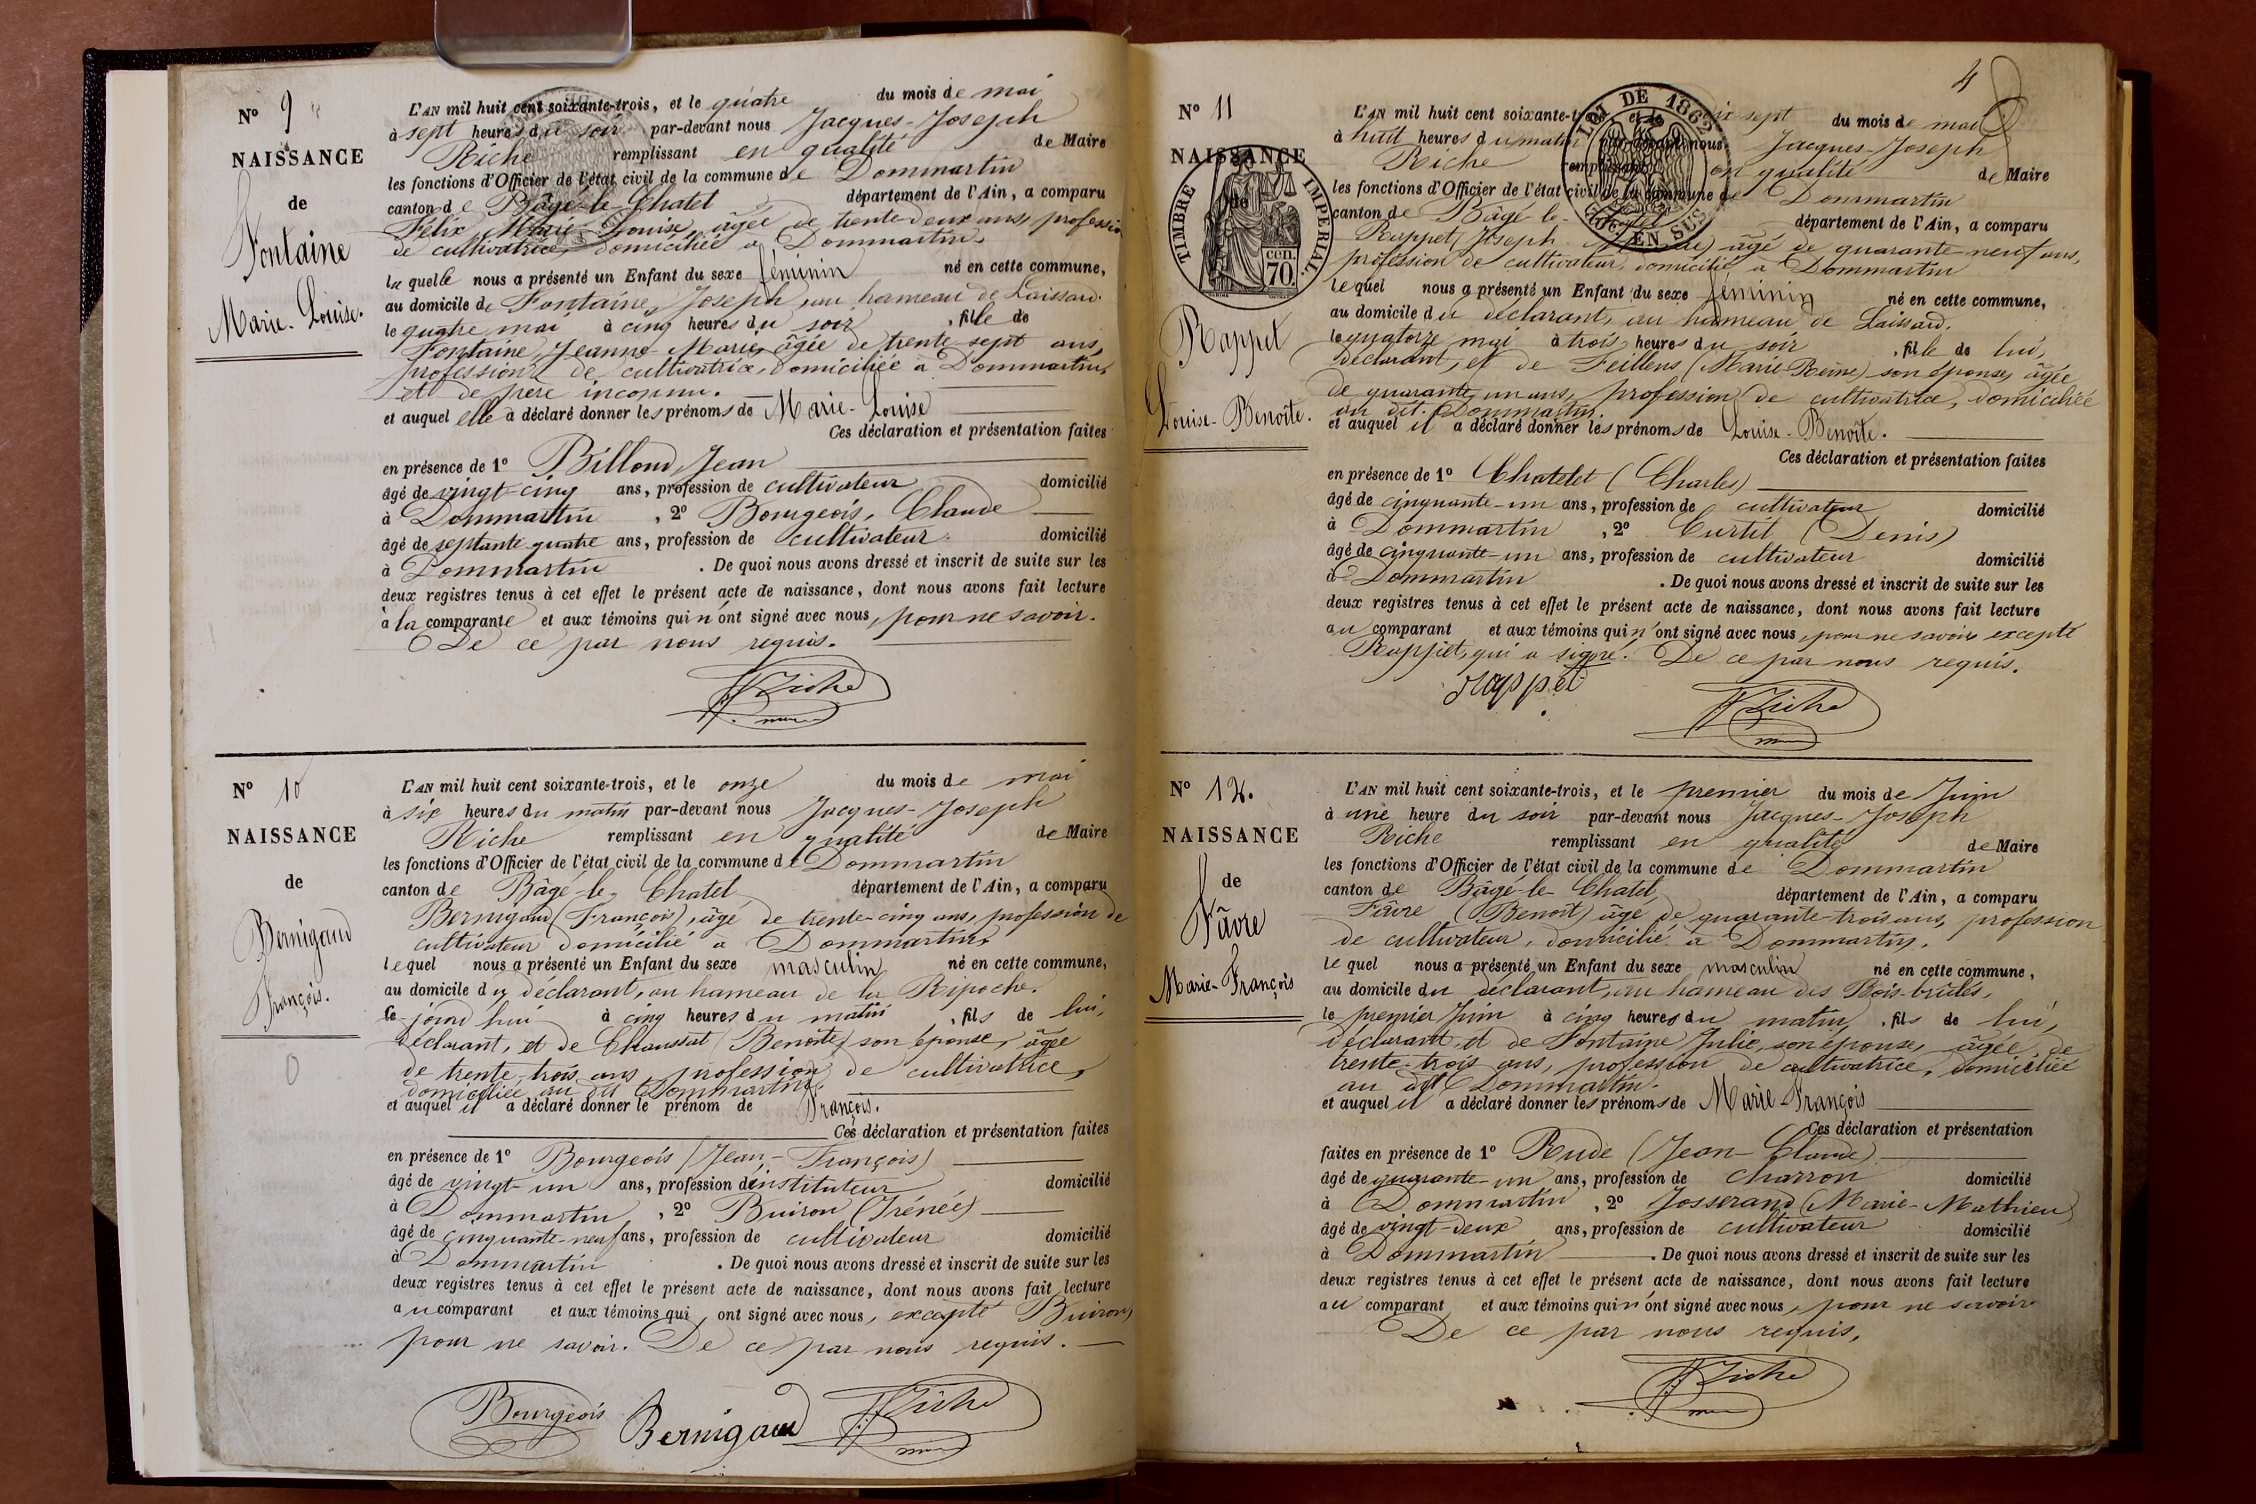 N° 9
NAISSANCE
de
Fontaine
Marie-Louise.
L'AN mil huit cent soixante-trois, et le quatre du mois de mai
à sept heures du soir par-devant nous Jacques-Joseph
Riche remplissant en qualité de Maire
les fonctions d'Officier de l'état civil de la commune de Dommartin
canton de Bâgé-le-Chatel département de l'Ain, a comparu
Félix, Marie-Louise, âgée de trente-deux ans, profession
de cultivatrice, domiciliée à Dommartin,
laquelle nous a présenté un Enfant du sexe féminin né en cette commune,
au domicile de Fontaine, Joseph, au hameau de Laissard.
le quatre mai à cinq heures du soir, fille de
Fontaine, Jeanne-Marie, âgée de trente-sept ans,
profession de cultivatrice, domiciliée à Dommartin,
et de père inconnu.
et auquel elle a déclaré donner les prénoms de Marie-Louise
Ces déclaration et présentation faites
en présence de 1° Billoud, Jean
âgé de vingt-cinq ans, profession de cultivateur domicilié
à Dommartin, 2° Bourgeois, Claude
âgé de septante-quatre ans, profession de cultivateur domicilié
à Dommartin. De quoi nous avons dressé et inscrit de suite sur les
deux registres tenus à cet effet le présent acte de naissance, dont nous avons fait lecture
à la comparante et aux témoins qui n'ont signé avec nous, pour ne savoir.
De ce par nous requis.
Riche
N° 10
NAISSANCE
de
Bernigaud
François.
L'AN mil huit cent soixante-trois, et le onze du mois de mai
à six heures du matin par-devant nous Jacques-Joseph
Riche remplissant en qualité de Maire
les fonctions d'Officier de l'état civil de la commune de Dommartin
canton de Bâgé-le-Chatel département de l'Ain, a comparu
Bernigaud (François), âgé de trente-cinq ans, profession de
cultivateur domicilié à Dommartin,
lequel nous a présenté un Enfant du sexe masculin né en cette commune,
au domicile du déclarant, au hameau de la Ripoche.
Ce jourd'hui à cinq heures du matin, fils de lui,
déclarant, et de Chaussat (Benoîte) son épouse, âgée
de trente-trois ans, profession de cultivatrice,
domiciliée au dit Dommartin.
et auquel il a déclaré donner le prénom de François.
Ces déclaration et présentation faites
en présence de 1° Bourgeois (Jean-François)
âgé de vingt-un ans, profession d'instituteur domicilié
à Dommartin, 2° Buiron (Irénée)
âgé de cinquante-neuf ans, profession de cultivateur domicilié
à Dommartin. De quoi nous avons dressé et inscrit de suite sur les
deux registres tenus à cet effet le présent acte de naissance, dont nous avons fait lecture
au comparant et aux témoins qui ont signé avec nous, excepté Buiron,
pour ne savoir. De ce par nous requis.
Bourgeois Bernigaud Riche
4
N° 11
NAISSANCE
de
TIMBRE IMPERIAL.
cen. 70.
Rappet
Louise-Benoîte.
LOI DE 1862
EN SUS
L'AN mil huit cent soixante-trois, et le dix sept du mois de mai
à huit heures du matin par-devant nous Jacques-Joseph
Riche remplissant en qualité de Maire
les fonctions d'Officier de l'état civil de la commune de Dommartin
canton de Bâgé-le-Chatel département de l'Ain, a comparu
Rappet (Joseph ) âgé de quarante-neuf ans,
profession de cultivateur, domicilié à Dommartin
lequel nous a présenté un Enfant du sexe féminin né en cette commune,
au domicile du déclarant, au hameau de Laissard.
le quatorze mai à trois heures du soir, fille de lui,
déclarant, et de Feillens (Marie-Reine) son épouse, âgée
de quarante-un ans, profession de cultivatrice, domiciliée
au dit Dommartin.
et auquel il a déclaré donner les prénoms de Louise-Benoîte.
Ces déclaration et présentation faites
en présence de 1° Chatelet (Charles)
âgé de cinquante-un ans, profession de cultivateur domicilié
à Dommartin, 2° Curtil (Denis)
âgé de cinquante-un ans, profession de cultivateur domicilié
à Dommartin. De quoi nous avons dressé et inscrit de suite sur les
deux registres tenus à cet effet le présent acte de naissance, dont nous avons fait lecture
au comparant et aux témoins qui n'ont signé avec nous, pour ne savoir, excepté
Rappet, qui a signé. De ce par nous requis.
rappet Riche
N° 12.
NAISSANCE
de
Fâvre
Marie-François
L'AN mil huit cent soixante-trois, et le premier du mois de Juin
à une heure du soir par-devant nous Jacques-Joseph
Riche remplissant en qualité de Maire
les fonctions d'Officier de l'état civil de la commune de Dommartin
canton de Bâgé-le-Chatel département de l'Ain, a comparu
Fâvre (Benoît) âgé de quarante-trois ans, profession
de cultivateur, domicilié à Dommartin,
lequel nous a présenté un Enfant du sexe masculin né en cette commune,
au domicile du déclarant, au hameau des Bois-brûlés,
le premier Juin à cinq heures du matin, fils de lui,
déclarant, et de Fontaine Julie, son épouse, âgée de
trente-trois ans, profession de cultivatrice, domiciliée
au dit Dommartin.
et auquel il a déclaré donner les prénoms de Marie-François
Ces déclaration et présentation
faites en présence de 1° Rude (Jean-Claude)
âgé de quarante-un ans, profession de charron domicilié
à Dommartin, 2° Josserand (Marie-Mathieu)
âgé de vingt-deux ans, profession de cultivateur domicilié
à Dommartin. De quoi nous avons dressé et inscrit de suite sur les
deux registres tenus à cet effet le présent acte de naissance, dont nous avons fait lecture
au comparant et aux témoins qui n'ont signé avec nous, pour ne savoir
De ce par nous requis.
Riche